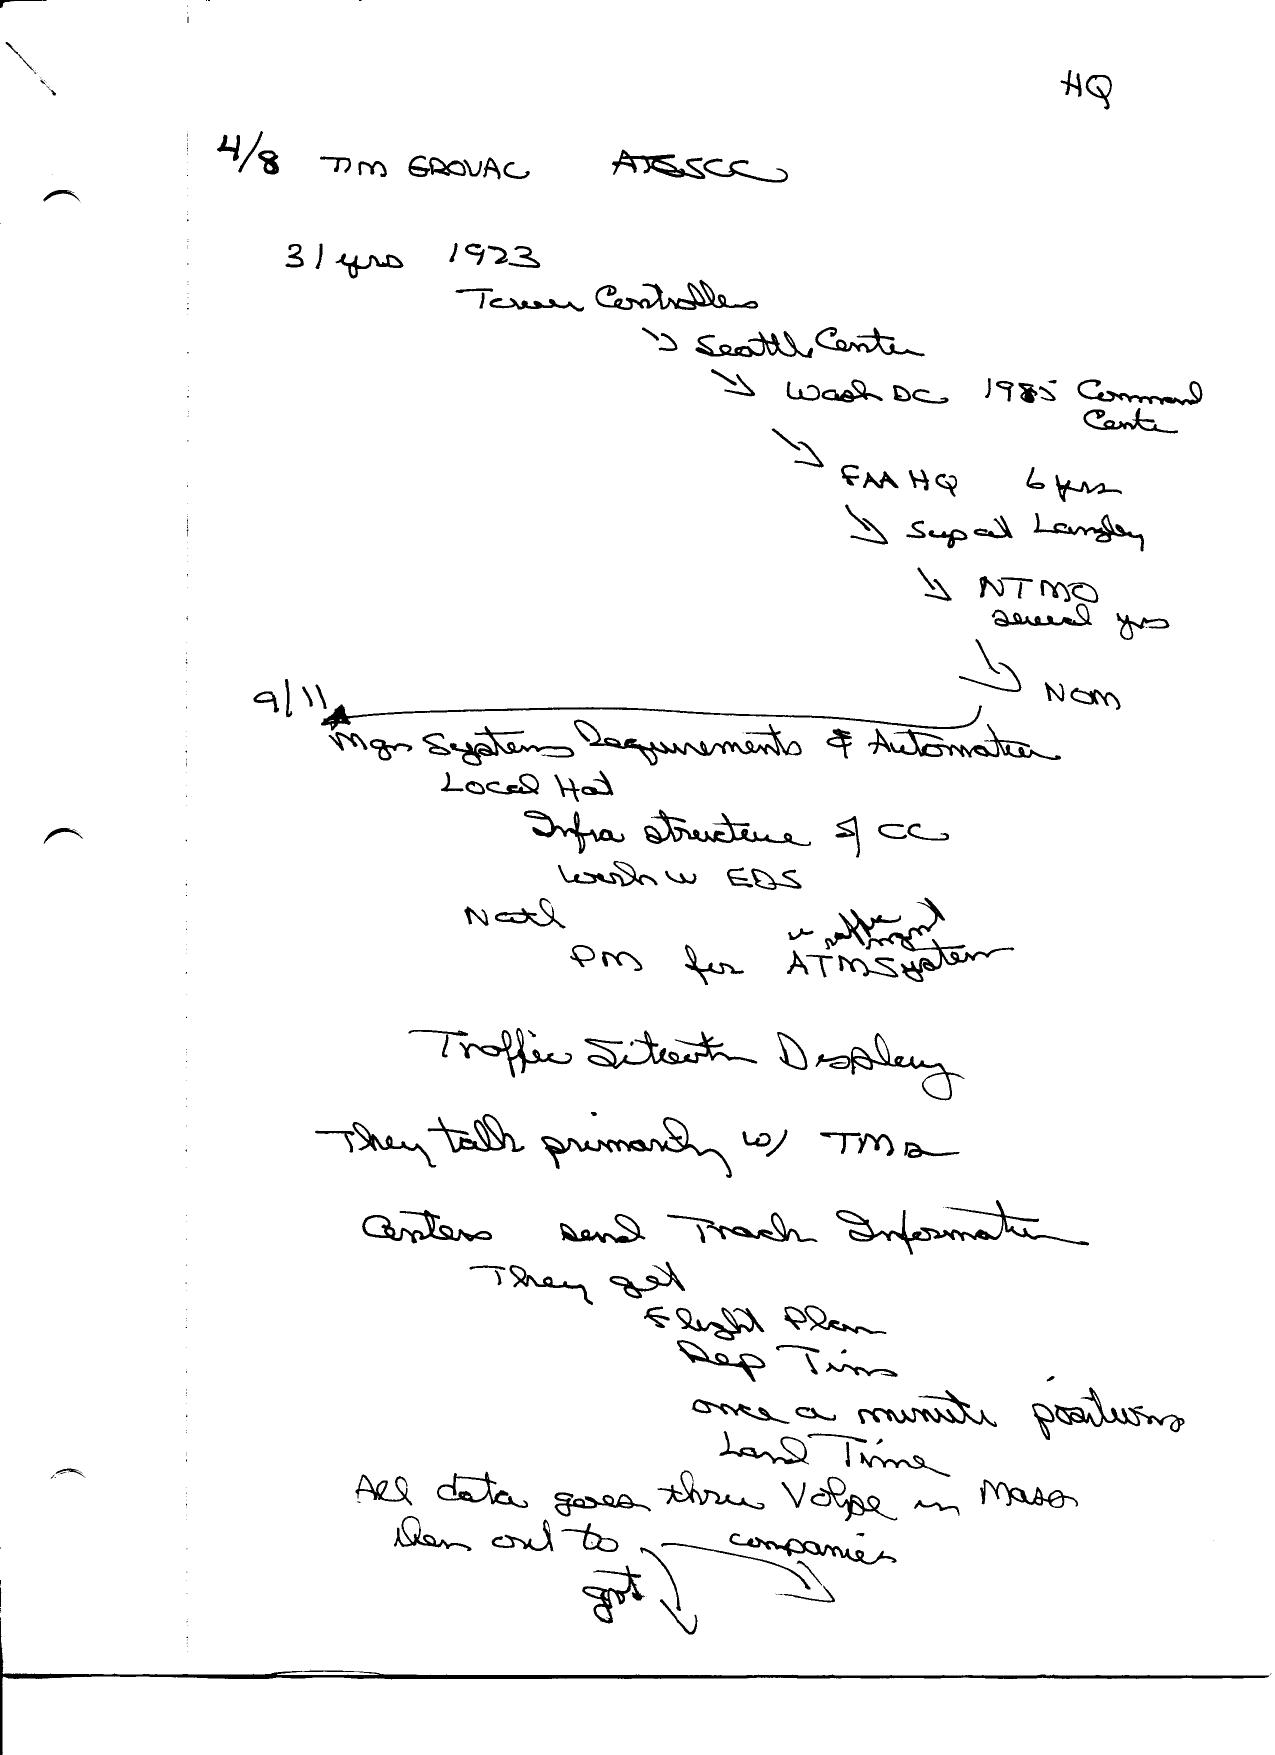 HQ
4/8 TIM GROVAC ATCSCC
31 yrs 1923
Tower Controller
→ Seattle Center
→ Wash DC 1985 Command
Cente
→ FAA HQ 6 yrs
→ Sup at Langley
→ NTMO
several yrs
→ NOM
9/11
Mgr Systems Requirements & Automation
Local Hat
Infra structure of CC
Work w EDS
Natl
traffic mgmt
PM for ATM System
Traffic Situatn Display
They talk primarily w/ TMs
Centers send Track Information
They get
Flight Plan
Dep Time
once a minute positions
Land Time
All data goes thru Volpe in Mass
then out to companies
gvt